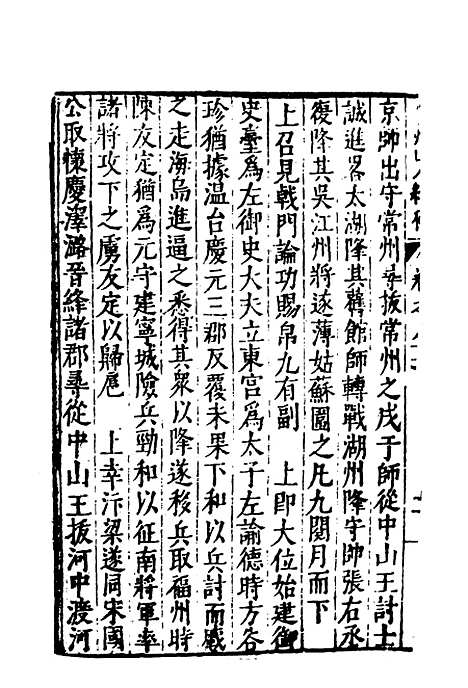 京帥出守常州尋拔常州之戍于師從中山王討士
誠進畧太湖降其舊館師轉戰湖州降守帥張右丞
復降其吳江州將遂薄姑蘇圍之凡九閱月而下
上召見戟門論功賜帛九有副　上即大位始建御
史臺為左御史大夫立東宮為太子左諭德時方谷
珍猶據温台慶元三郡反覆未果下和以兵討而蹙
之走海島進逼之悉得其眾以降遂移兵取福州時
陳友定猶為元守建寧城險兵勁和以征南將軍率
諸將攻下之虜友定以歸扈　上幸汴梁遂同宋國
公取懷慶澤潞晉絳諸郡尋從中山王拔河中渡河